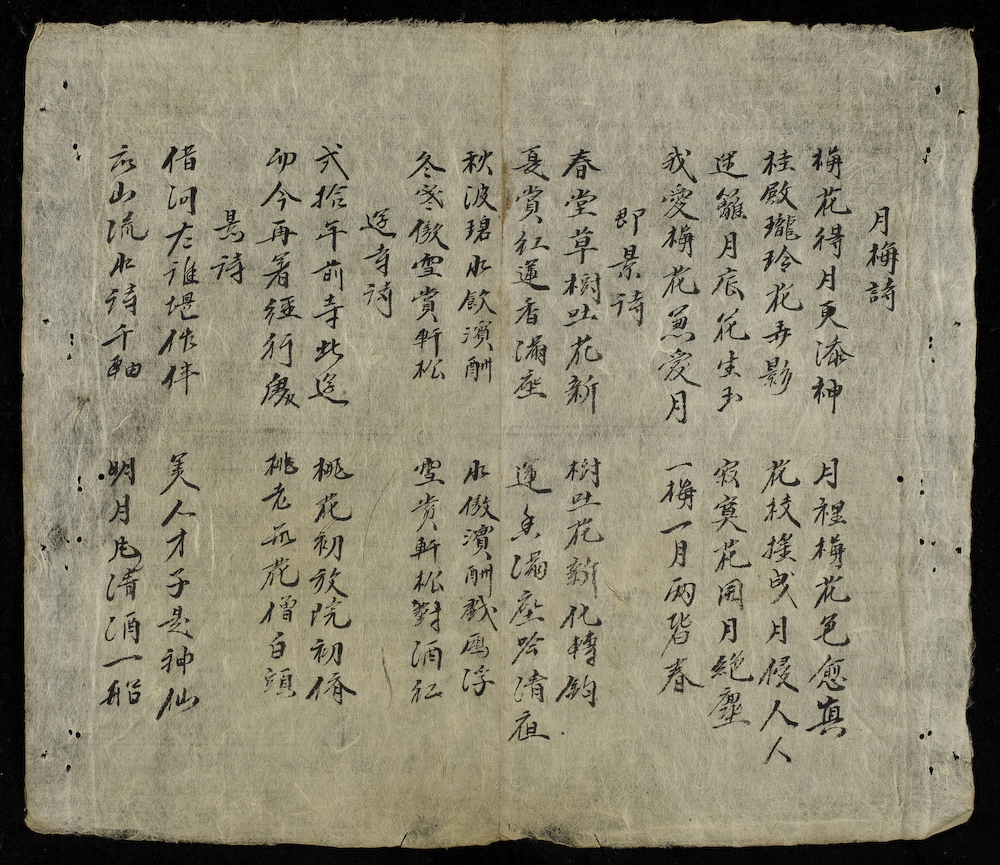 月梅詩
梅花得月更添神 月裡梅花色愈真
桂殿瓏玲花弄影 花枝揺曳月侵人人
迷籬月痕花生玉 寂寞花開月絕塵
我愛梅花兼愛月 一梅一月兩皆春
即景诗
春堂草樹吐花新 樹吐花新化轉鈞
夏賞红蓮香滿座 蓮香滿座吟清
秋波碧水飲濱酬 水傲濱酬戲鴈浮
冬寒傲雪賞軒松 雪賞軒松對酒红
遊寺诗
弍拾年前寺此遊 桃花初放院初脩
而今再著經行處 桃老无花僧白頭
景诗
借问左誰堪作伴 美人才子是神仙
高山流水诗千軸 明月清酒一船